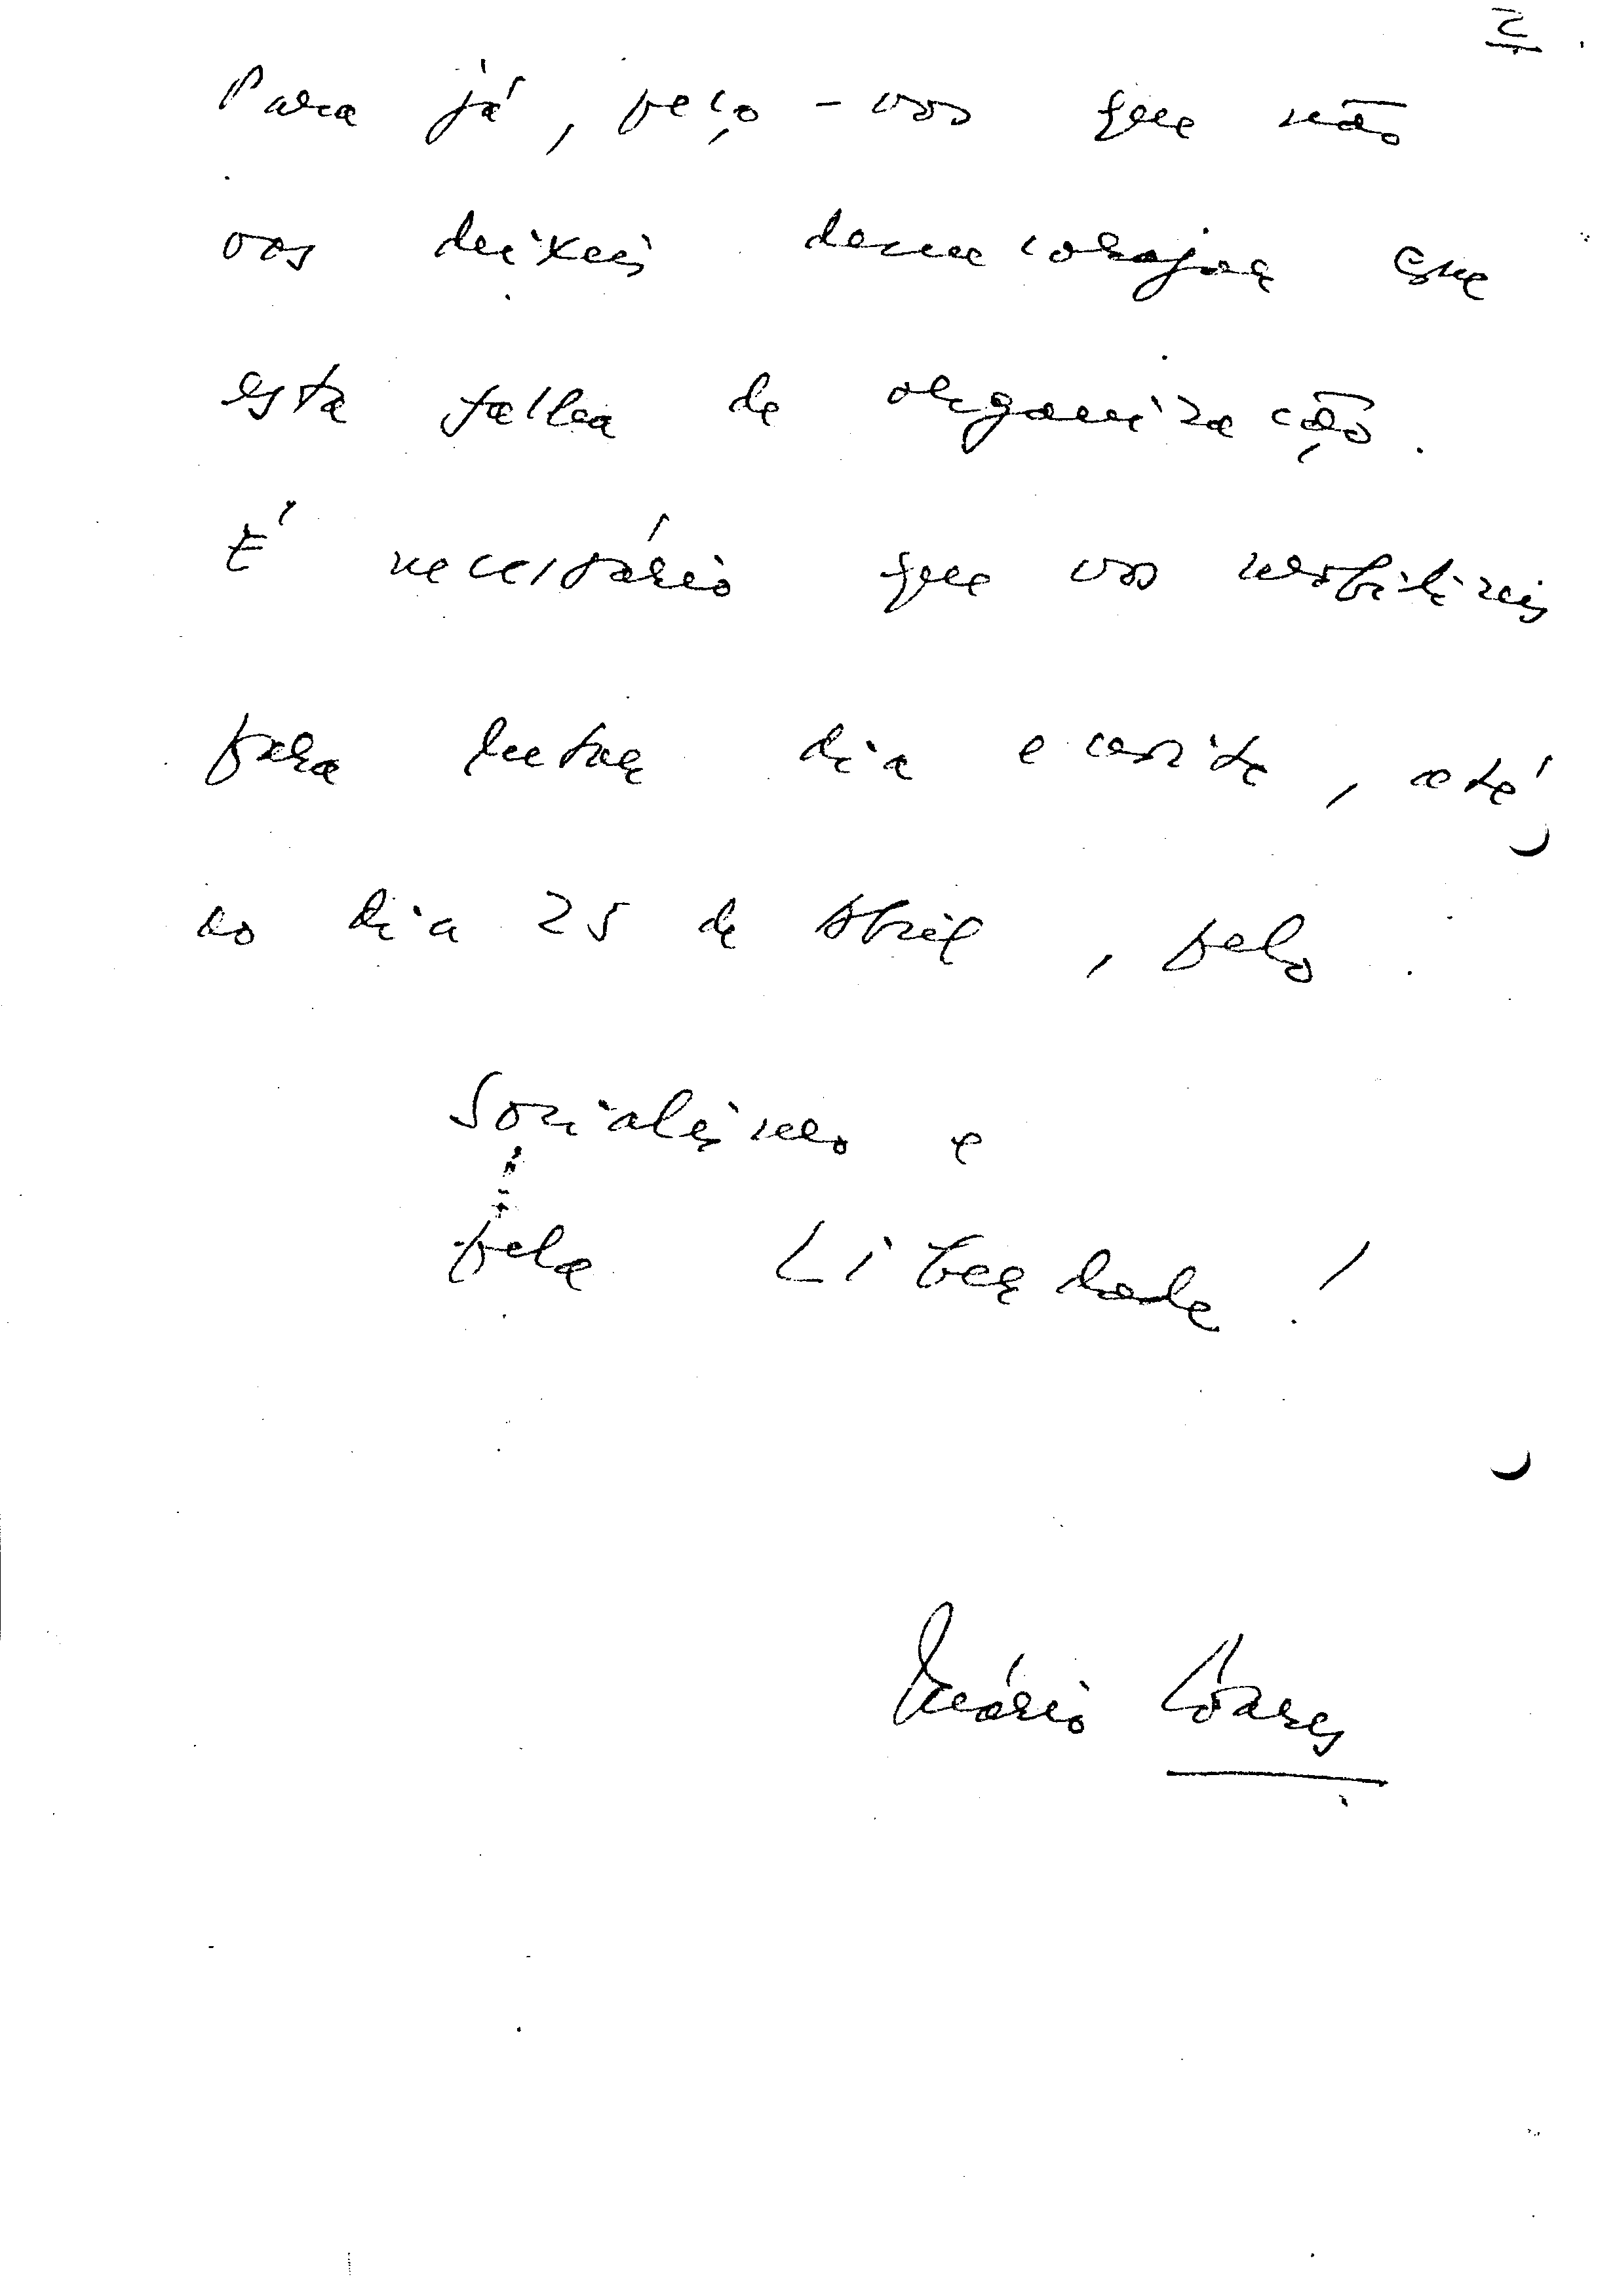 2.
Para já, peço-vos que não
vos deixeis desencorajar com
esta falha de organização.
É necessário que vos mobilizeis
para lutar dia e noite, até
ao dia 25 de Abril, pelo
Socialismo e
pela Liberdade!
Mário Soares